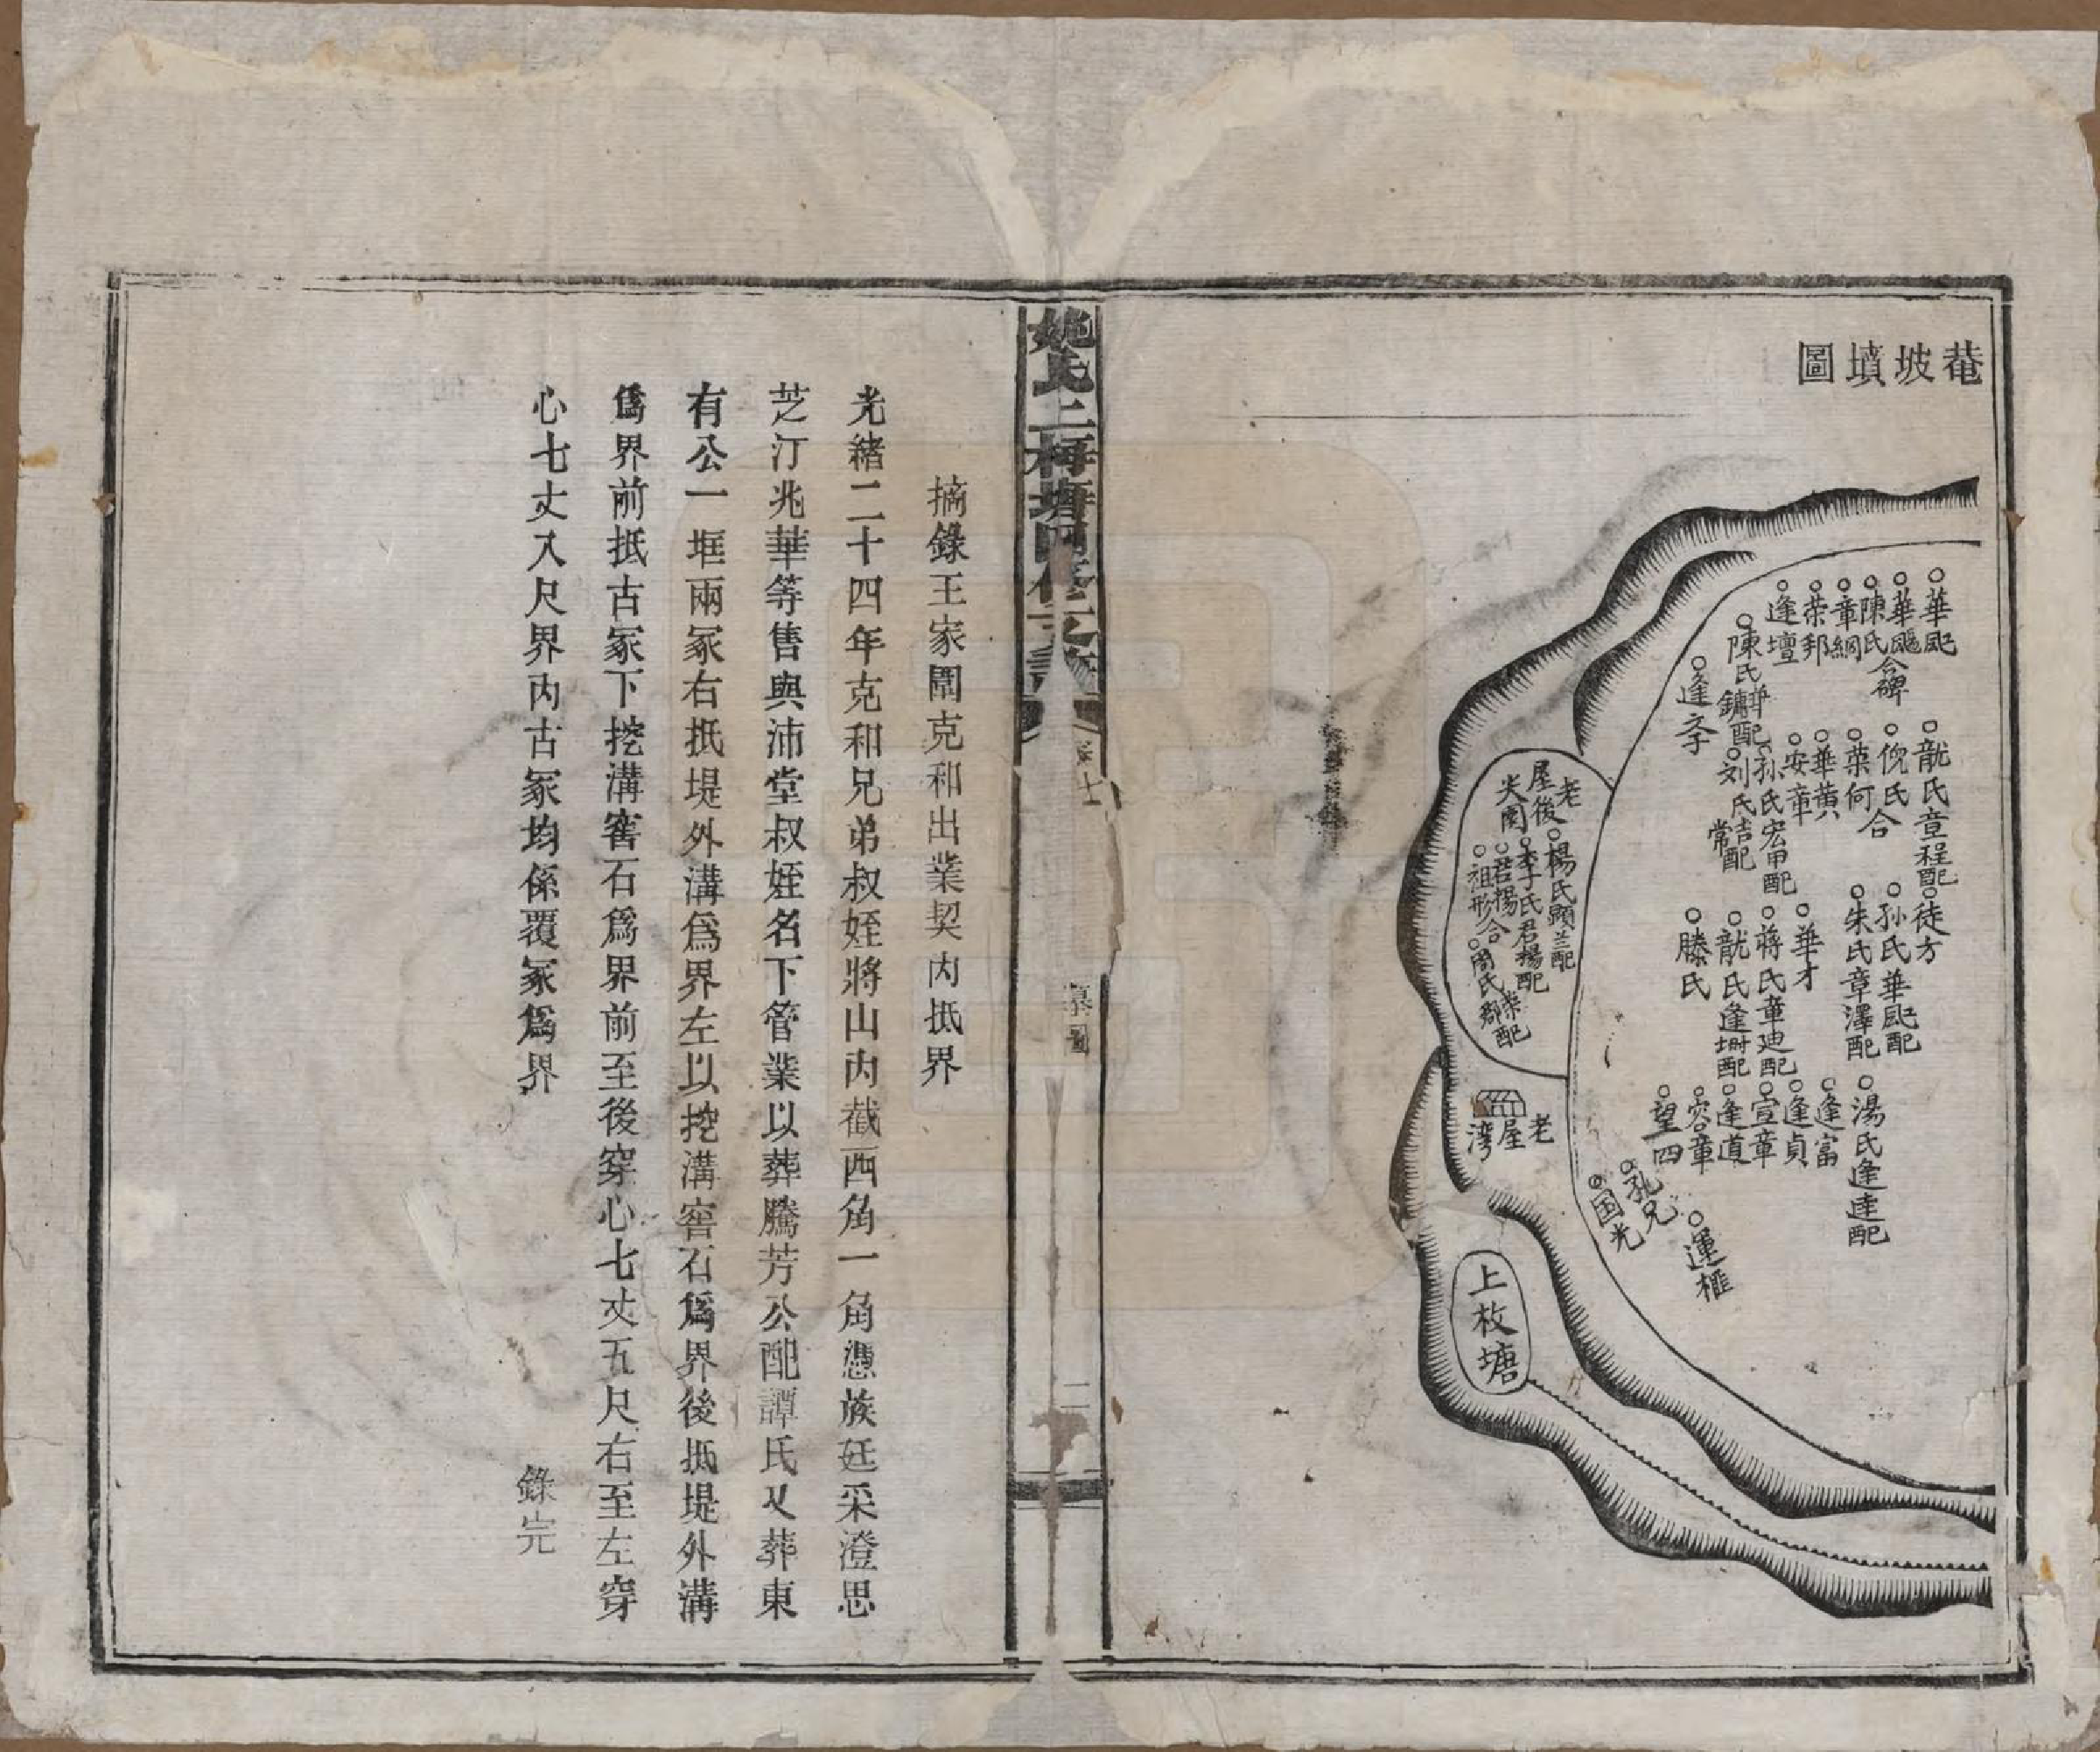 菴坡墳圖
華颩
華颺
陳氏合碑
章綱
荣邦
逢壇
陳氏華鏞配
逢李
龍氏章程配
倪氏合
荣何
華黄
安章
孙氏宏甲配
刘氏吉常配
徒方
孙氏華颩配
朱氏章澤配
華才
蔣氏章迪配
龍氏逢堋配
滕氏
湯氏逢達配
逢富
逢貞
宣章
逢道
容章
望四
孔兄
国光
運樞
老屋後
楊氏顯兰配
李氏君揚配
君揚合
祖形
周氏郡荣配
老屋湾
上枚塘
姚氏上梅塘四修支譜
卷七
墓圖
二
摘錄王家闈克和出業契内抵界
光緒二十四年克和兄弟叔姪將山内截西角一角憑族廷采澄思
芝汀兆華等售與沛堂叔姪名下管業以葬騰芳公配譚氏又葬東
有公一堆兩冢右抵堤外溝爲界左以挖溝窖石爲界後抵堤外溝
爲界前抵古冢下挖溝窖石爲界前至後穿心七丈五尺右至左穿
心七丈入尺界内古冢均係覆冢爲界
錄完